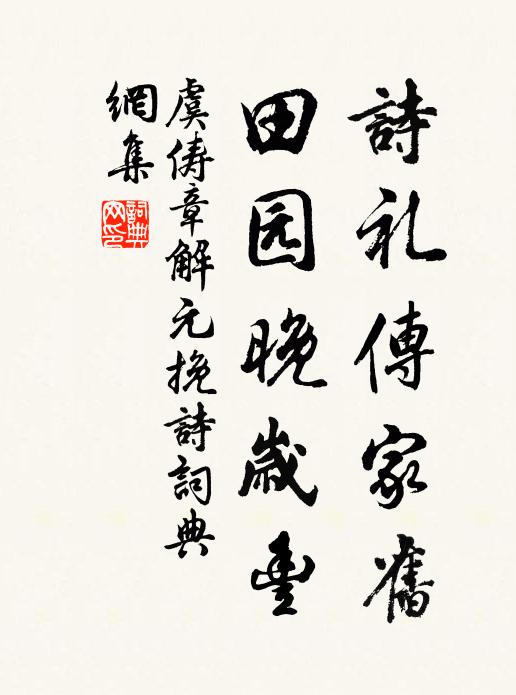 詩礼傳家舊
田园晚歲豊
虞俦章解元挽詩詞典
網集
詞典网印